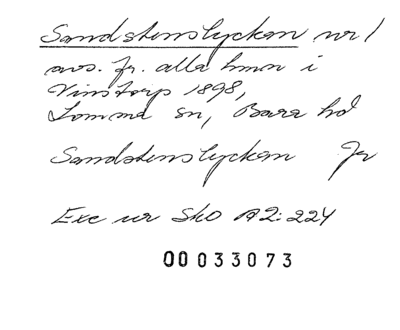 Sandstenslyckan nr 1
avs. fr. alla hmn i
Vinstorp 1898,
Lomma sn, Bara hd
Sandstenslyckan Jr
Exc ur Sko A2:224
00033073